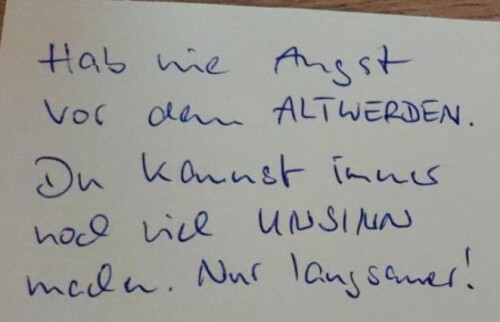 Hab nie Angst
vor dem ALTWERDEN.
Du kannst immer
noch viel UNSINN
machen. Nur langsamer!